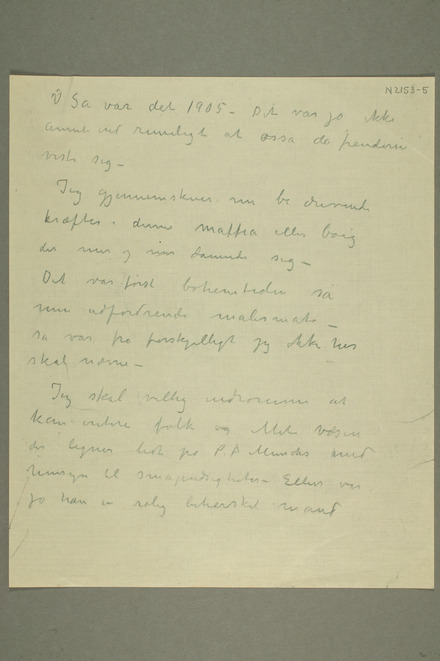 N2153-5
Så var det 1905 – Det var jo ikke
annet end rimeligt at ossa da fienderne
viste sig –
Jeg gjennemskuer nu de drivende
kræfter – denne maffia eller
der mer og mer dannede sig –
Det var først bohemtiden så
min udfordrende malermåte –
så var fra forskjelligt jeg ikke her
skal nævne –
Jeg skal villig indrømme at
kan folk og Mit væsen
der ligner lidt på P. A Munchs med
hensyn til – Ellers var
jo han en rolig behersket mand